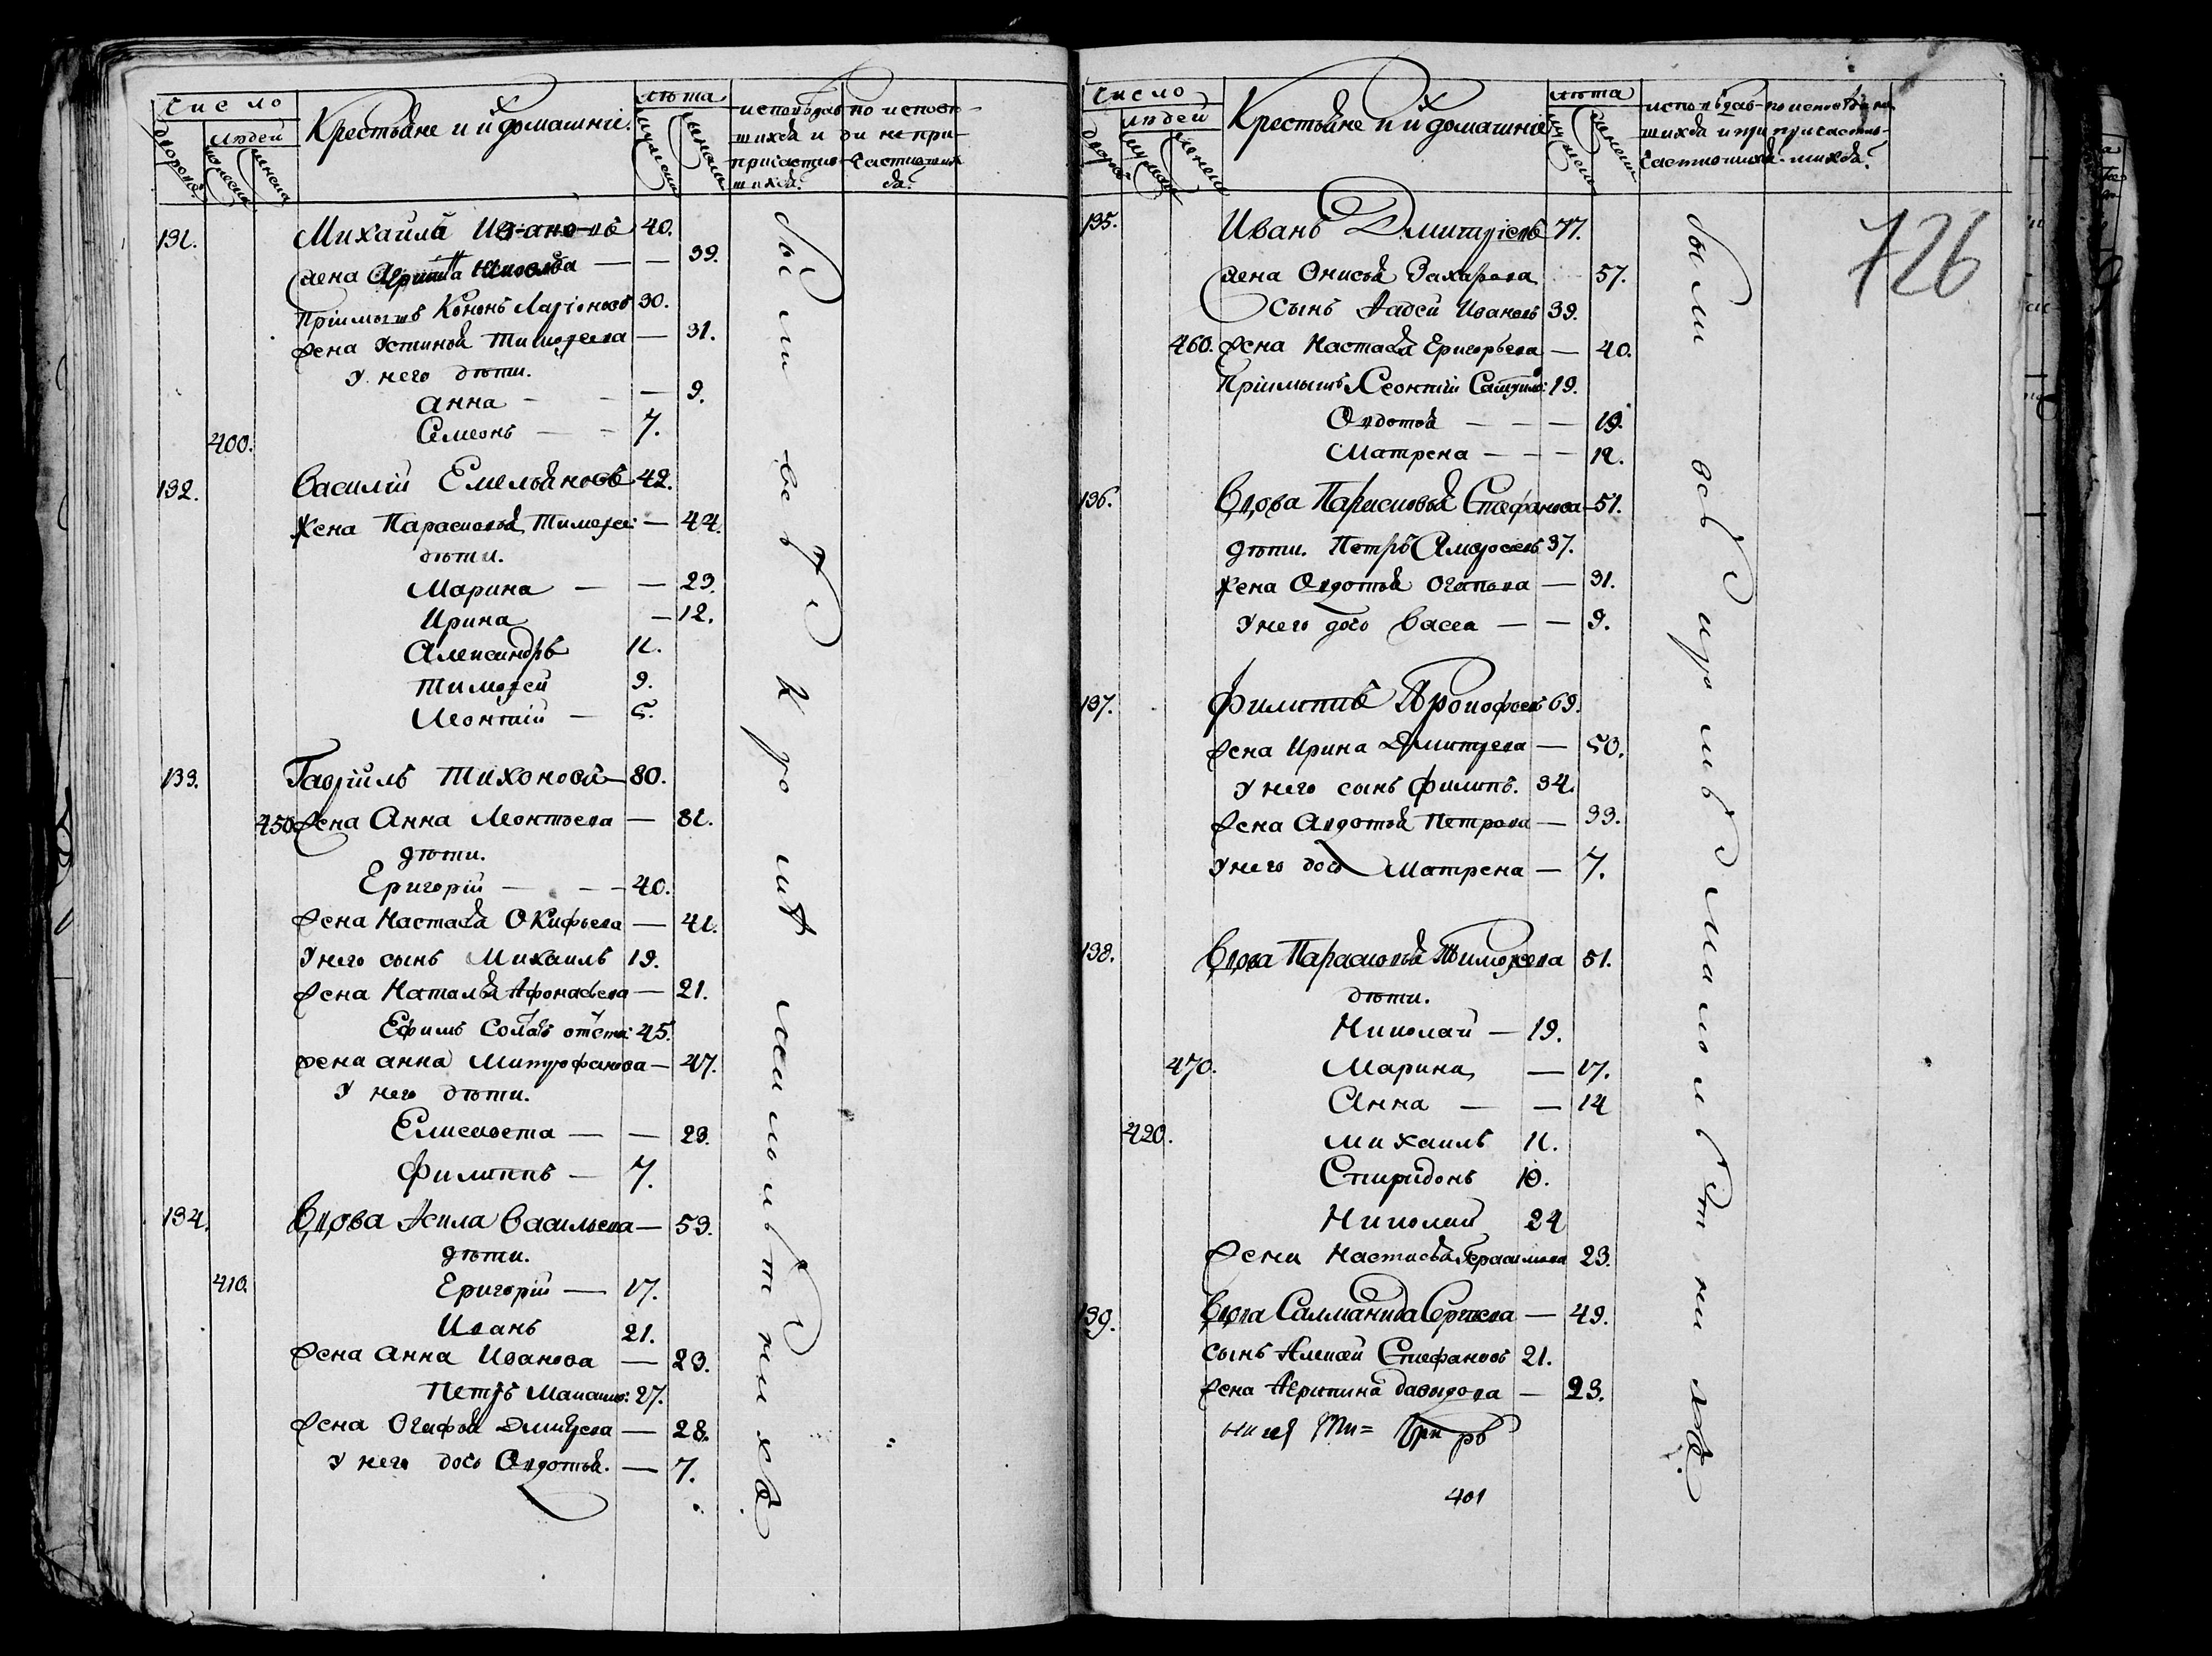 число
людей
дворовъ
мужеска
женска
Крестьяне и ихъ домашніе.
лѣта
мужеска
женска
исповѣдав-
шихся и
причастив-
шихся.
по исповѣ-
ди не при-
частивших
ся.
131. Михайла Ивановъ 40.
жена 39.
Пріимышъ Кононъ Ларіоновъ 30.
жена Устинья Тимоѳеева — 31.
У него дѣти.
Анна — 9.
400. Семеонъ — 7.
132. Василій Емельяновъ 42.
жена Парасковья Тимоѳее: — 44.
дѣти.
Марина — 23.
Ирина — 12.
Александръ 11.
Тимоѳей 9.
Леонтій — 5.
133. Гавріилъ Тихоновъ — 80.
450. жена Анна Леонтьева — 81.
дѣти.
Григорій — 40.
жена Настасья Окифьева — 41.
У него сынъ Михаилъ 19.
жена Наталья Афонасьева — 21.
Ефимъ 45.
жена Анна Митрофанова — 47.
У него дѣти.
Елисавета — 23.
Филиппъ — 7.
134. Вдова Акила Васильева — 53.
дѣти.
410. Григорій — 17.
Иванъ 21.
жена Анна Иванова — 23.
Петръ 27.
жена Огафья Дмитрева — 28.
У него дочь Овдотья. — 7.
число
людей
дворовъ
мужеска
женска
Крестьяне и ихъ домашніе
лѣта
мужеска
женска
исповѣдав-
шихся и при
частившихся.
по исповѣди не
причастив-
шихся.
726
135. Иванъ Дмитріевъ 77.
жена Онисья Захарова 57.
Сынъ Фадей Ивановъ 39.
460. жена Настасья Григорьева — 40.
Пріимышъ Леонтій 19.
Овдотья — 19.
Матрена — 12.
136. Вдова Парасковья Стефанова — 51.
дѣти. Петръ Амвросьевъ 37.
жена Овдотья Огапова — 31.
У него дочь Васса — 9.
137. Филиппъ Прокофьевъ 69.
жена Ирина Дмитрева — 50.
У него сынъ Филипъ. 34.
жена Авдотья Петрова — 33.
У него дочь Матрена — 7.
138. Вдова Парасковья Тимоѳеева 51.
дѣти.
Николай — 19.
470. Марина — 17.
Анна — 14
420. Михаилъ 11.
Спиридонъ 10.
Николай 24
жена Настасья Герасимова 23.
139. Вдова Саламанида Сергѣева — 49.
сынъ Алексѣй Стефановъ 21.
жена Агрипина Давыдова — 23.
401
были всѣ кромѣ малолѣтнихъ.
были всѣ кромѣ малолѣтнихъ.